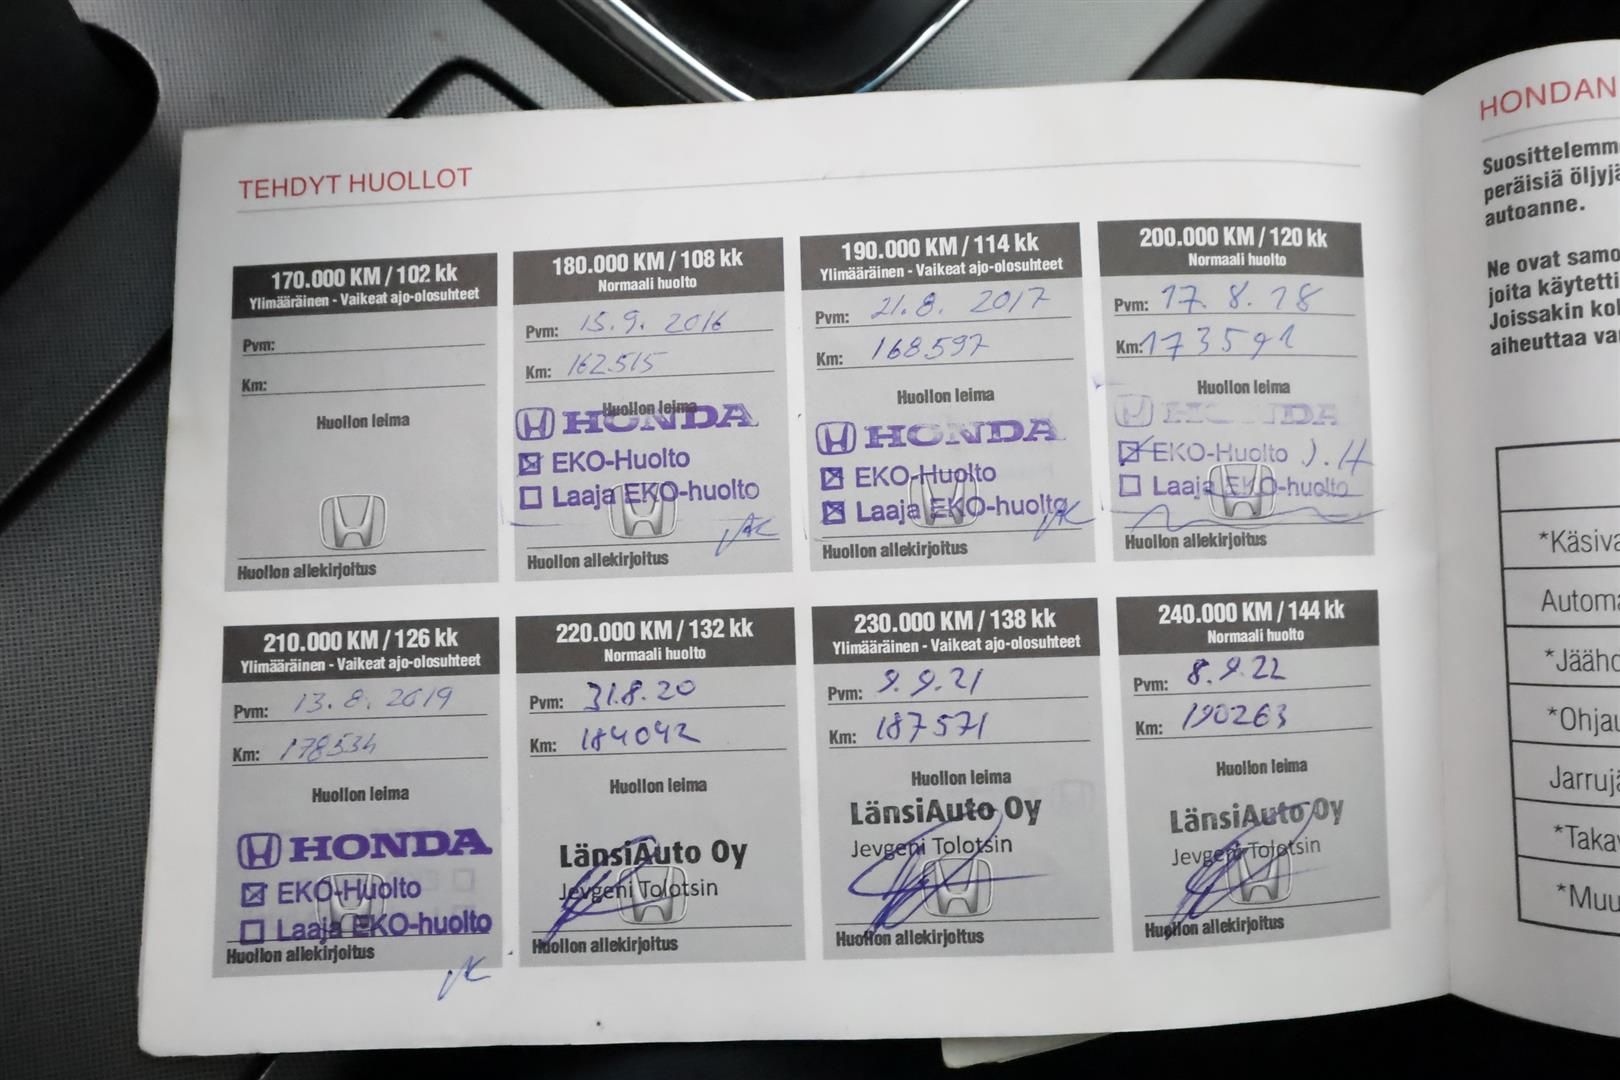 TEHDYT HUOLLOT
170.000 KM / 102 kk
Ylimääräinen - Vaikeat ajo-olosuhteet
Pvm:
Km:
Huollon leima
Huollon allekirjoitus
180.000 KM / 108 kk
Normaali huolto
Pvm: 15.9. 2016
Km: 162515
Huollon leima
HONDA
EKO-Huolto
Laaja EKO-huolto
Huollon allekirjoitus
190.000 KM / 114 kk
Ylimääräinen - Vaikeat ajo-olosuhteet
Pvm: 21.8. 2017
Km: 168597
Huollon leima
HONDA
EKO-Huolto
Laaja EKO-huolto
Huollon allekirjoitus
200.000 KM / 120 kk
Normaali huolto
Pvm: 17.8.18
Km: 173591
Huollon leima
HONDA
EKO-Huolto
Laaja EKO-huolto
Huollon allekirjoitus
210.000 KM / 126 kk
Ylimääräinen - Vaikeat ajo-olosuhteet
Pvm: 13.8.2019
Km: 178534
Huollon leima
HONDA
EKO-Huolto
Laaja EKO-huolto
Huollon allekirjoitus
220.000 KM / 132 kk
Normaali huolto
Pvm: 31.8.20
Km: 184042
Huollon leima
LänsiAuto Oy
Jevgeni Tolotsin
Huollon allekirjoitus
230.000 KM / 138 kk
Ylimääräinen - Vaikeat ajo-olosuhteet
Pvm: 9.9.21
Km: 187571
Huollon leima
LänsiAuto Oy
Jevgeni Tolotsin
Huollon allekirjoitus
240.000 KM / 144 kk
Normaali huolto
Pvm: 8.9.22
Km: 190263
Huollon leima
LänsiAuto Oy
Jevgeni Tolotsin
Huollon allekirjoitus
HONDAN
Suosittelemm
peräisiä öljyjä
autoanne.
Ne ovat samo
joita käytetti
Joissakin kol
aiheuttaa va
*Käsiva
Automa
*Jäähd
*Ohjau
Jarrujä
*Takav
*Muu